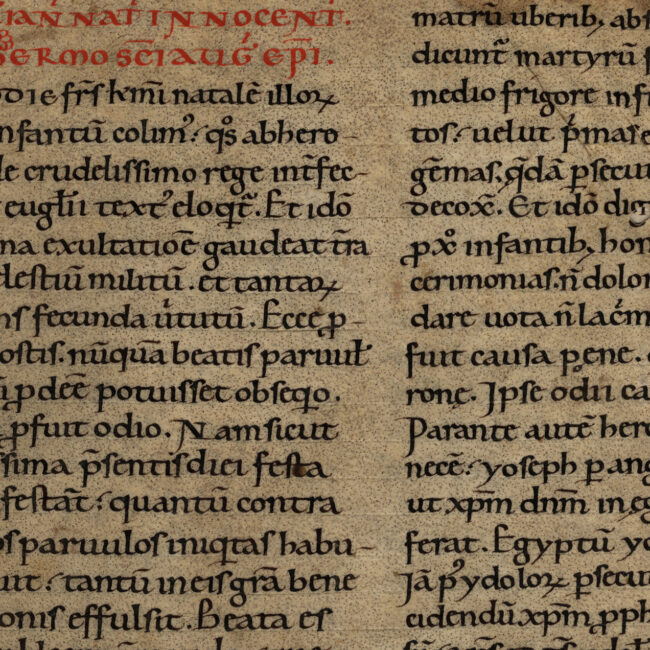 IAN NAT̄ INNOCENT̄.
SERMO SC̄I AUḠ EP̄I.
ODIE fr̄s km̄i natalē illoꝝ
nfantū colimꝰ. q̄s ab hero-
le crudelissimo rege int̄fec-
euglīi textꝰ eloqt̄. Et idō
na exultatiōe gaudeat t̄ra
lestiū militū. et tantaꝝ
ns fecunda u̍tutū. Ecce ꝓ-
ostis. nūquā beatis paruul̄
ꝓdēe potuisset obseqio.
ꝓfuit odio. Nam sicut
ssima p̄sentis diei festa
festāt. quantū contra
os paruulos iniqtas habu-
uit. tantū in eis gr̄a bene
onis effulsit. Beata es
matrū uberib; abs
dicunt̄ martyrū f
medio frigore infi
tos. uelut p̄mase
gēmas. qdā ꝑsecut
decox̄. Et idō dig
ꝓ xō infantib; hon
cerimonias. n̄ dolor
dare uota n̄ lac̍m
fuit causa pene.
rone. Ipse odii ca
Parante autē hero
necē. yoseph ꝑ ang
ut xp̄m dn̄m in eg
ferat. Egyptū yo
Iā pꝰ ydoloꝝ ꝑsecut
cidendū xp̄m ꝓph